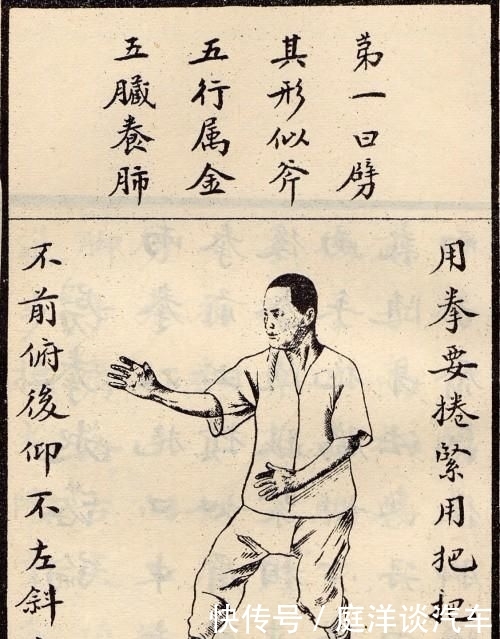 第一曰劈
其形似斧
五行属金
五臟養肺
用拳要捲緊用把把
不前俯後仰不左斜
快传号/庭洋谈汽车